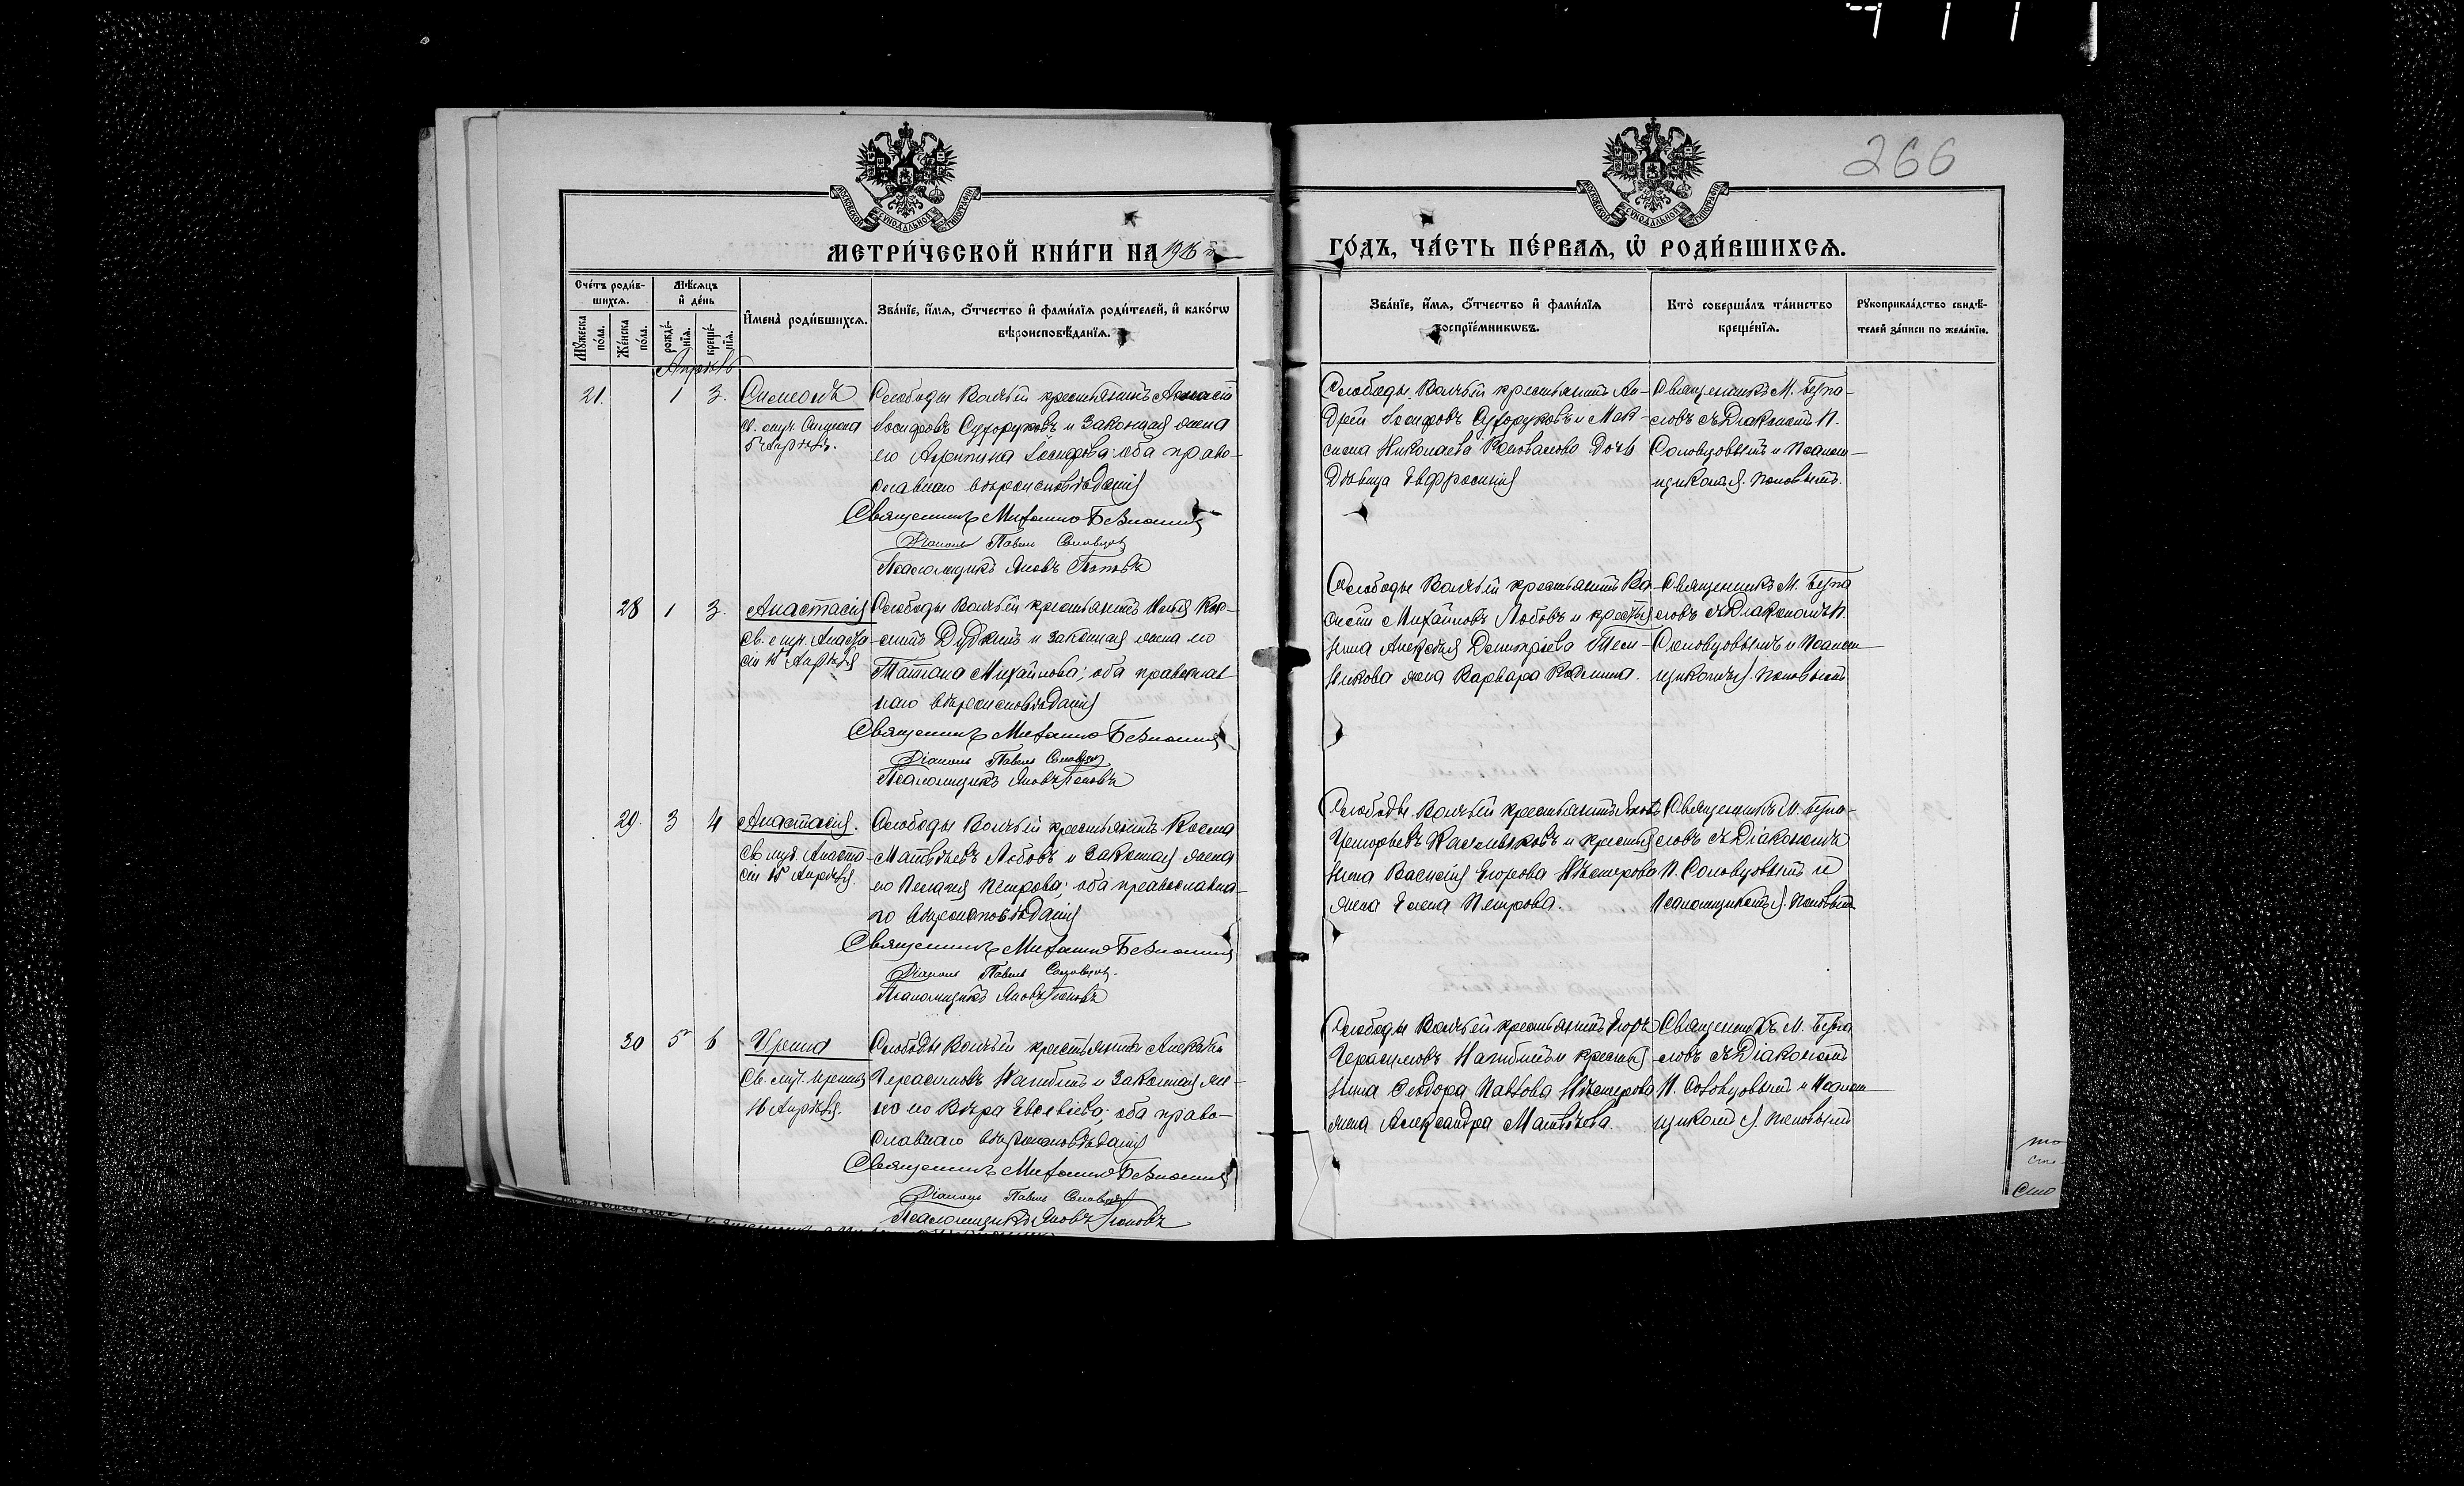 266
МЕТРИ́ЧЕСКОЙ КНИ́ГИ НА 1916 й
ГО́ДЪ, ЧА́СТЬ ПЕ́РВАѦ, Ѽ РОДИ́ВШИХСѦ.
Сче́тъ роди́в-
шихсѧ.
Мѣ́сѧцъ
и҆ де́нь
И҆мена̀ роди́вшихсѧ.
Зва́нїе, и҆́мѧ, ѻ҆́тчество и҆ фами́лїѧ роди́телей, и҆ како́гѡ
вѣроисповѣ́данїѧ.
Мꙋ́жеска
по́ла.
Же́нска
по́ла.
рожде́-
нїѧ.
креще́-
нїѧ.
Зва́нїе, и҆́мѧ, ѻ҆́тчество и҆ фами́лїѧ
воспрїе́мникѡвъ.
Кто̀ соверша́лъ та́инство
креще́нїѧ.
Рꙋкоприкла́дство свидѣ́-
телей за́писи по жела́нїю.
Апрѣль
21. 1 3. Симеонъ
Св. муч. Симеона
5 Апрѣля.
Слободы Волчьей крестьянинъ
Іосифовъ Сухоруковъ и законная жена
его Агриппина Іосифова: оба право-
славнаго вѣроисповѣданія
Священникъ Михаилъ
Діаконъ Павелъ Соловцовъ
Псаломщикъ Яковъ Поповъ
Слободы Волчьей крестьянинъ Ан-
дрей Іосифовъ Сухоруковъ и Мак-
сима Николаева Коновалова дочь
дѣвица Евфросинія
Священникъ М.
съ Діакономъ П.
Соловцовымъ и Псалом-
щикомъ Я. Поповымъ.
28 1 3. Анастасія
Св. муч. Анаста
сіи 15 Апрѣля
Слободы Волчьей крестьянинъ Илья
Дудкинъ и законная жена его
Татіана Михайлова; оба православ
наго вѣроисповѣданія
Священникъ Михаилъ
Діаконъ Павелъ Соловцовъ
Псаломщикъ Яковъ Поповъ
Слободы Волчьей крестьянинъ Ва-
силій Михайловъ Любовъ и крестья
нина Алексѣя Димитріева
жена Варвара
Священникъ М.
съ Діакономъ П.
Соловцовымъ и Псалом
щикомъ Я. Поповымъ
29. 3 4 Анастасія.
Св. муч. Анаста-
сіи 15 Апрѣля.
Слободы Волчьей крестьянинъ Косма
Матвѣевъ Любовъ и законная жена
его Пелагія Петрова; оба православна-
го вѣроисповѣданія
Священникъ Михаилъ
Діаконъ Павелъ Соловцовъ.
Псаломщикъ Яковъ Поповъ
Слободы Волчьей крестьянинъ Яковъ
Григорьевъ и крестья
нина Василія Егорова Нѣстерова
жена Елена Петрова.
Священникъ М.
съ Діакономъ
П. Соловцовымъ и
Псаломщикомъ Я. Поповымъ
30 5 6 Ирина
Св. муч. Ирины
16 Апрѣля.
Слободы Волчьей крестьянинъ Алексѣй
Герасимовъ Нагибинъ и законная же-
на его Вѣра Евсевіева; оба право-
славнаго вѣроисповѣданія
Священникъ Михаилъ
Діаконъ Павелъ Соловцовъ
Псаломщикъ Яковъ Поповъ
Слободы Волчьей крестьянинъ Егоръ
Герасимовъ Нагибинъ и крестья
нина Ѳеодора Павлова Нѣстерова
жена Александра Матвѣева.
Священникъ М.
съ Діакономъ
П. Соловцовымъ и Псалом-
щикомъ Я. Поповымъ